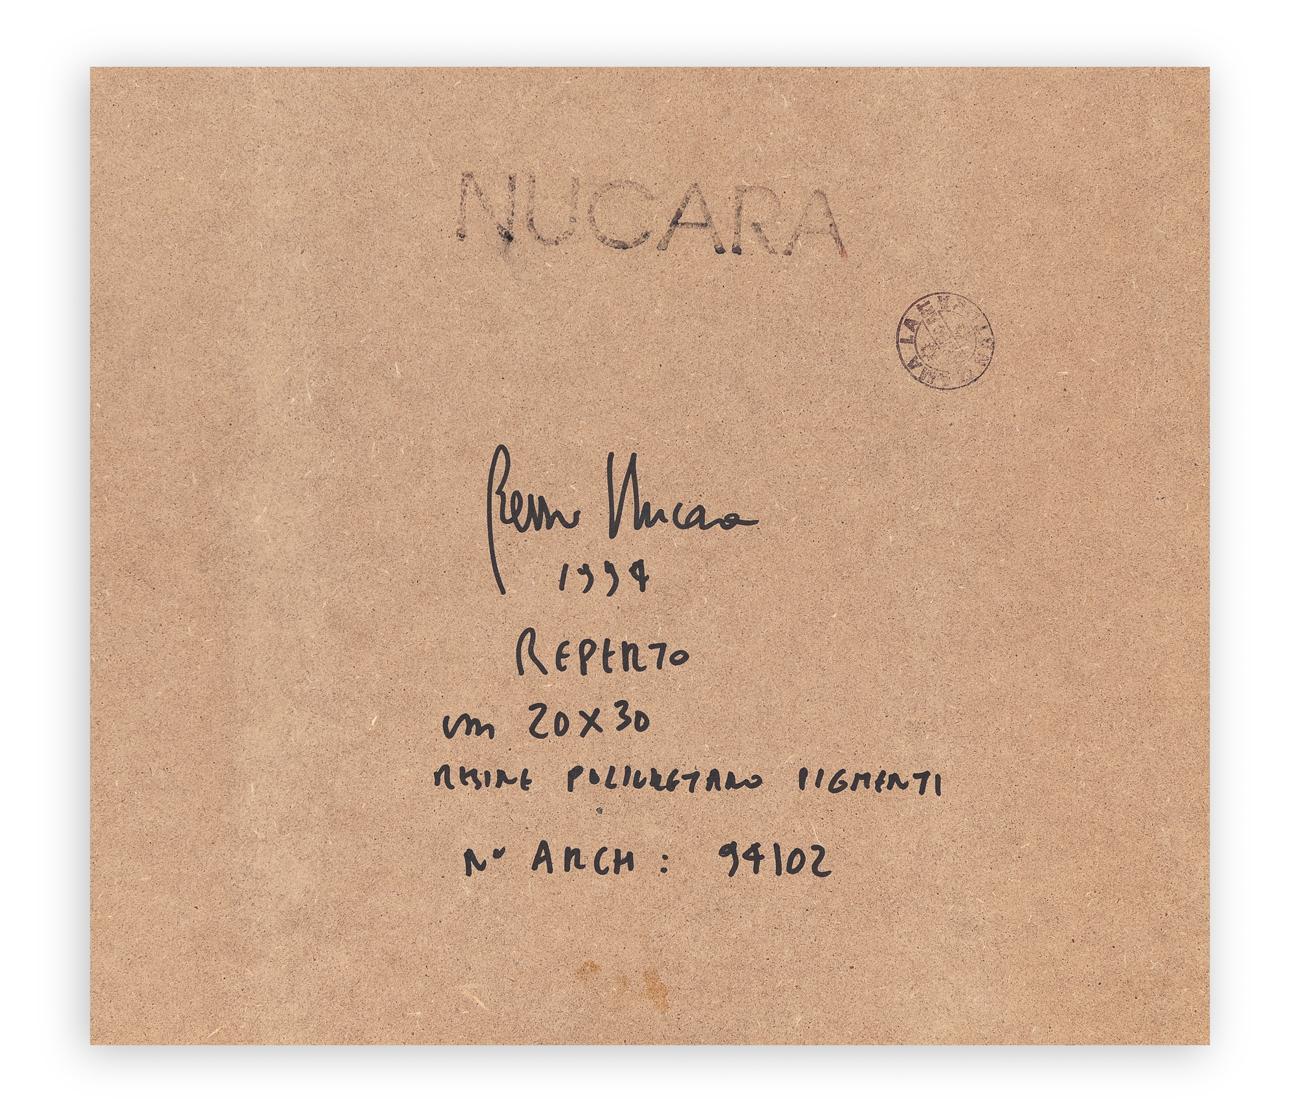 NUCARA
Nucara
1994
REPERTO
cm 20X30
RESINE POLIURETANO PIGMENTI
N° ARCH : 94102